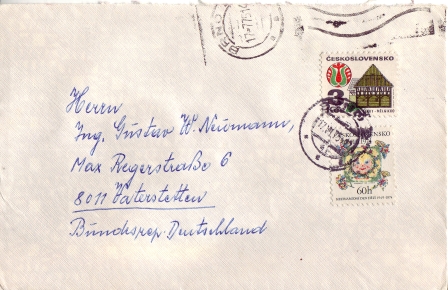 BRNO
ČESKOSLOVENSKO
3
Herrn
Ing. Gustav W. Neumann,
Max Regerstraße 6
8011 Vaterstetten
Bundesrep. Deutschland
60h